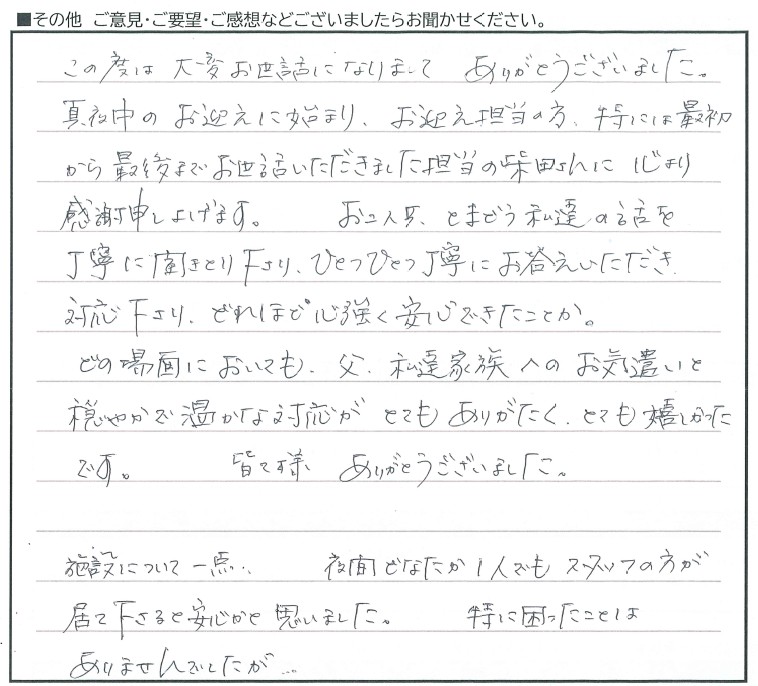 ■その他 ご意見・ご要望・ご感想などございましたらお聞かせください。
この度は 大変お世話になりまして ありがとうございました。
真夜中のお迎えに始まり、お迎え担当の方、特には最初
から最後までお世話いただきました担当の柴田さんに 心より
感謝申し上げます。 お二人共、とまどう私達の話を
丁寧に聞きとり下さり、ひとつひとつ丁寧にお答えいただき
対応下さり、どれほど心強く安心できたことか。
どの場面においても、父、私達家族へのお気遣いと
穏やかで温かな対応が とてもありがたく、とても嬉しかった
です。 皆て様 ありがとうございました。
施設について一点.. 夜間どなたか1人でもスタッフの方が
居て下さると安心かと思いました。 特に困ったことは
ありませんでしたが...